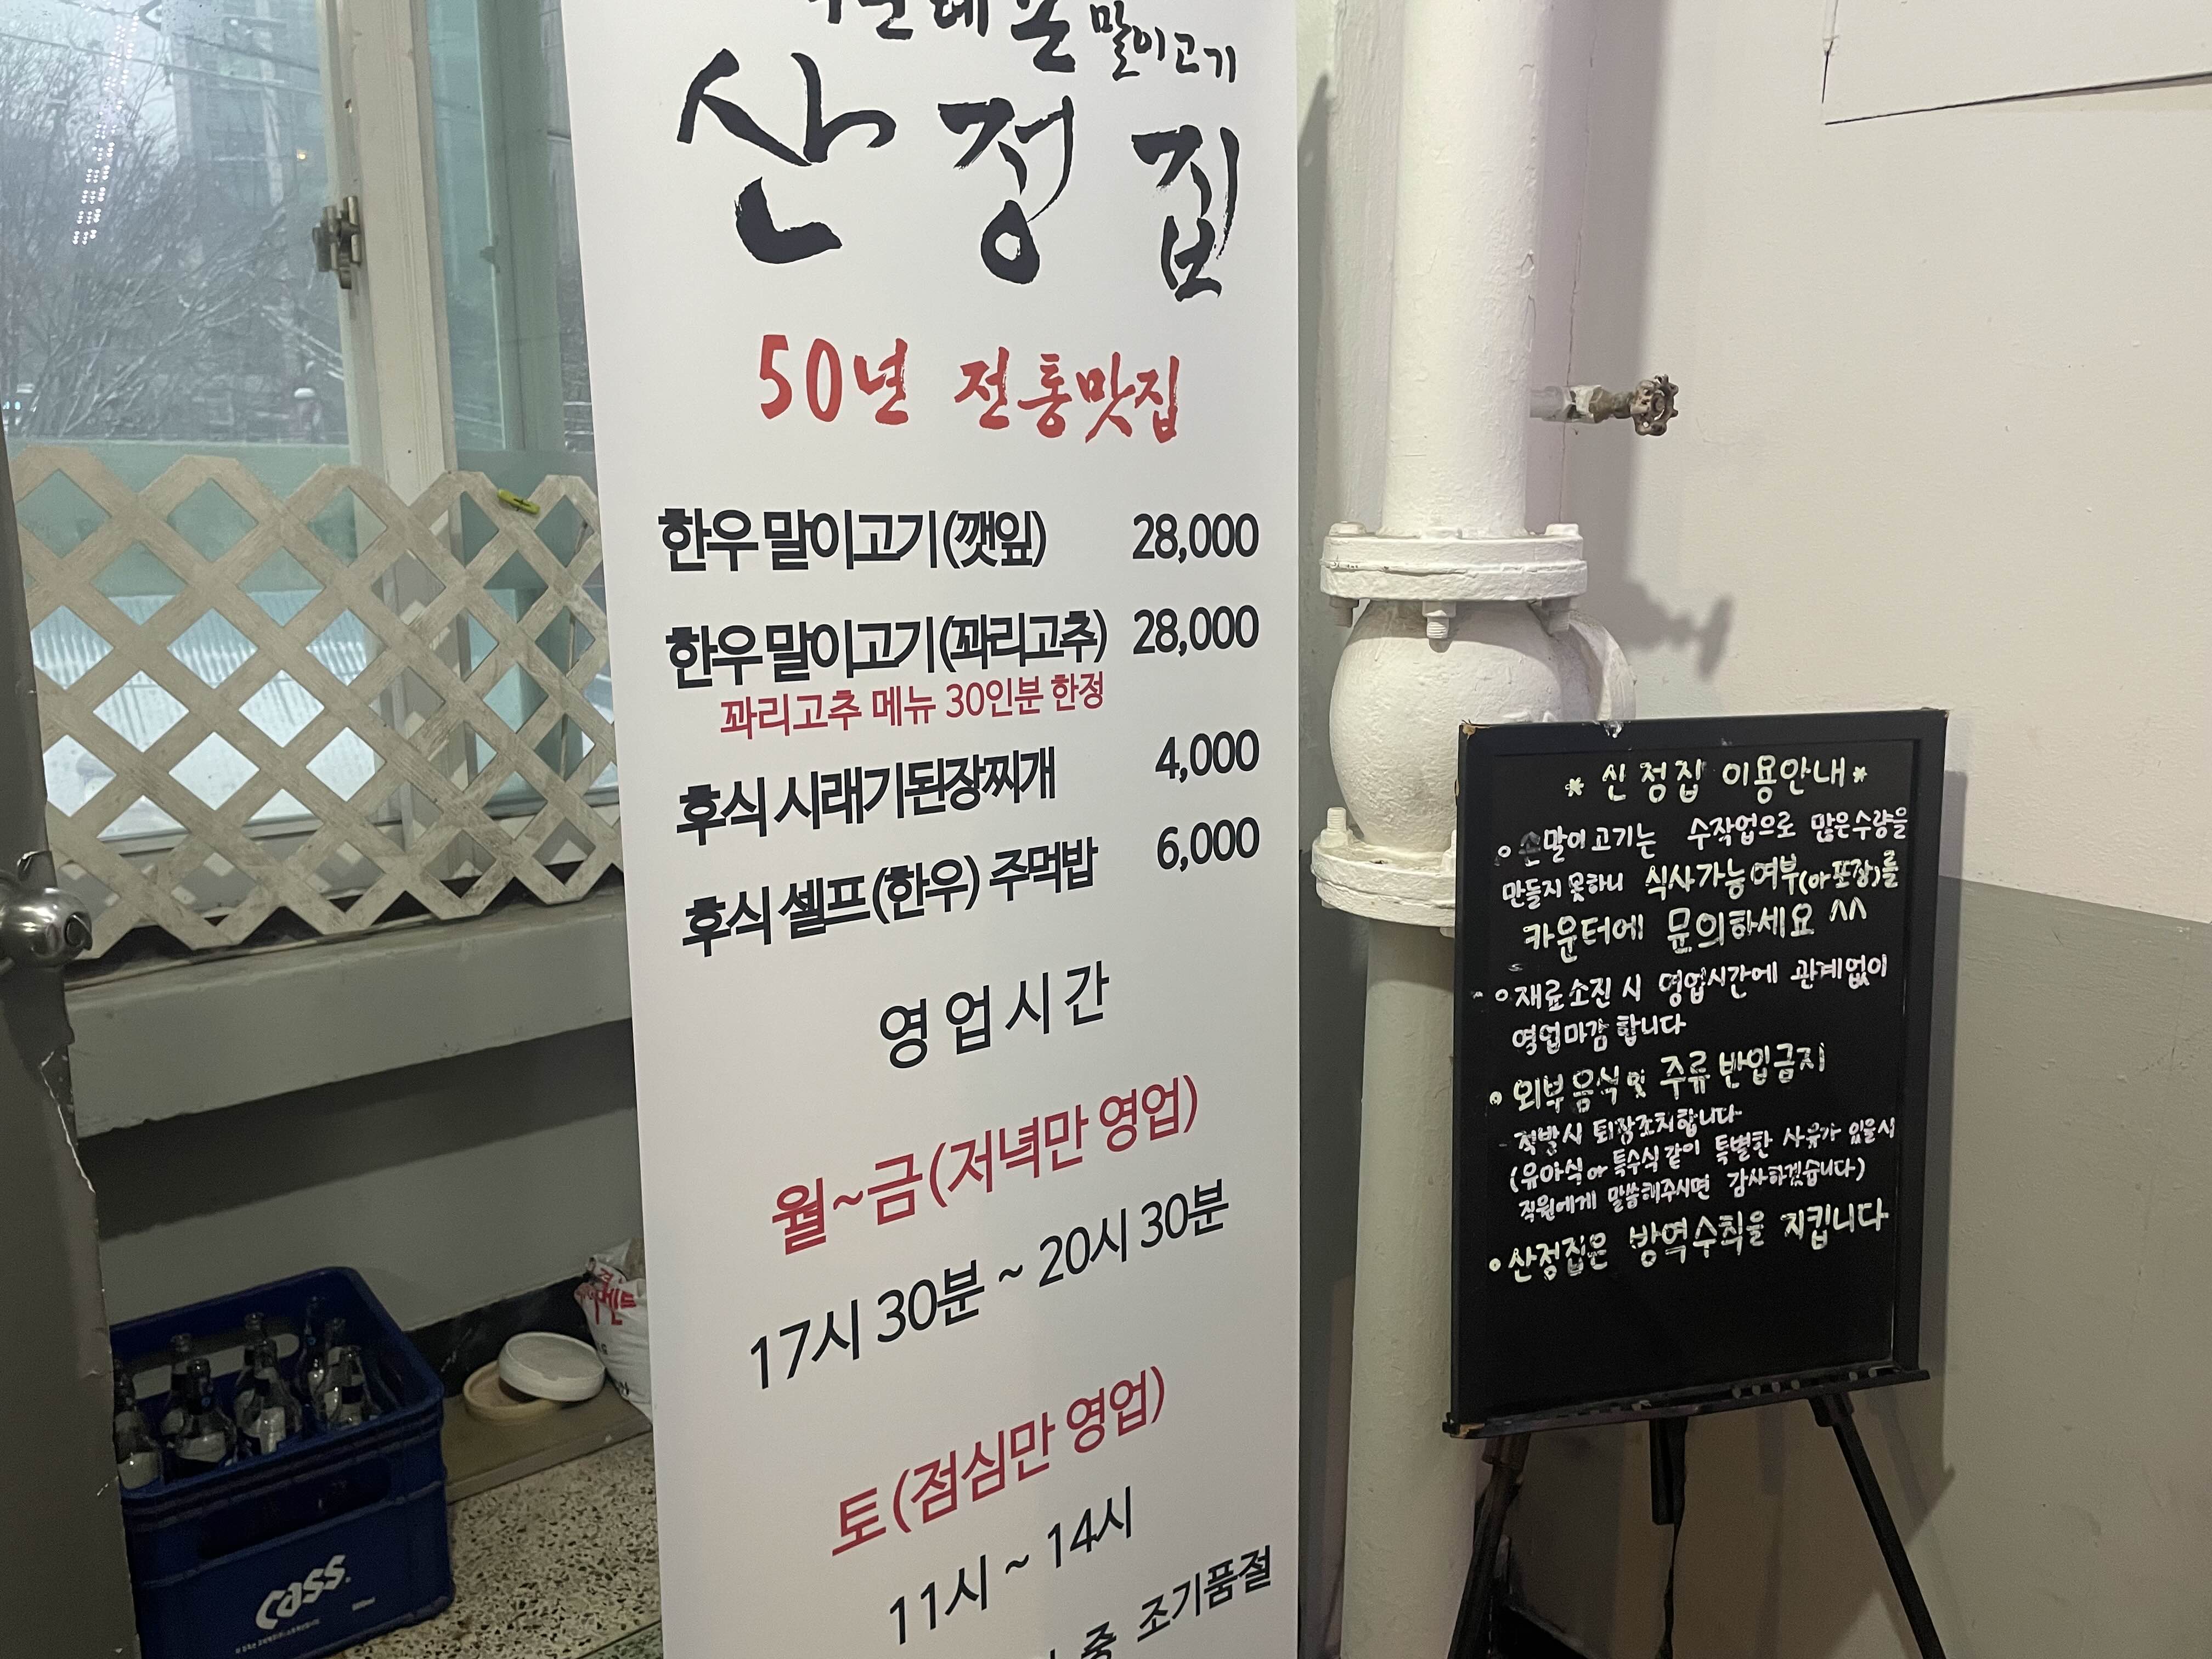 말이고기
산정집
50년 전통맛집
한우 말이고기(깻잎) 28,000
한우 말이고기(꽈리고추) 28,000
꽈리고추 메뉴 30인분 한정
후식 시래기된장찌개 4,000
후식 셀프(한우) 주먹밥 6,000
영업시간
월~금(저녁만 영업)
17시 30분 ~ 20시 30분
토(점심만 영업)
11시 ~ 14시
조기품절
* 산정집 이용안내 *
손말이고기는 수작업으로 많은수량을
만들지 못하니 식사가능여부(or포장)를
카운터에 문의하세요 ^^
재료소진 시 영업시간에 관계없이
영업마감 합니다
외부음식 및 주류 반입금지
적발시 퇴장조치합니다
(유아식 or 특수식같이 특별한 사유가 있을시
직원에게 말씀해주시면 감사하겠습니다)
산정집은 방역수칙을 지킵니다
cass